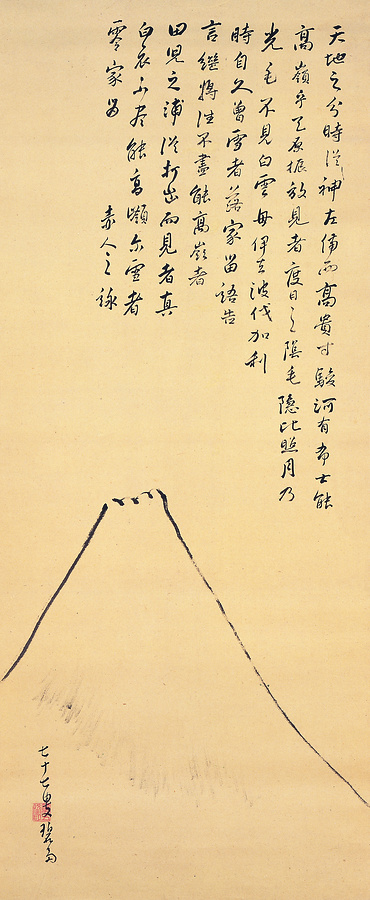 天地之分時従神左備而高貴寸駿河有布士能
高嶺乎天原振放見者度日之陰毛隠比照月乃
光毛不見白雲母伊去波伐加利
時自久曽雪者落家留語告
言継将往不盡能高嶺者
田児之浦従打出而見者真
白衣不尽能高嶺尓雪者
零家留
赤人之詠
七十七叟